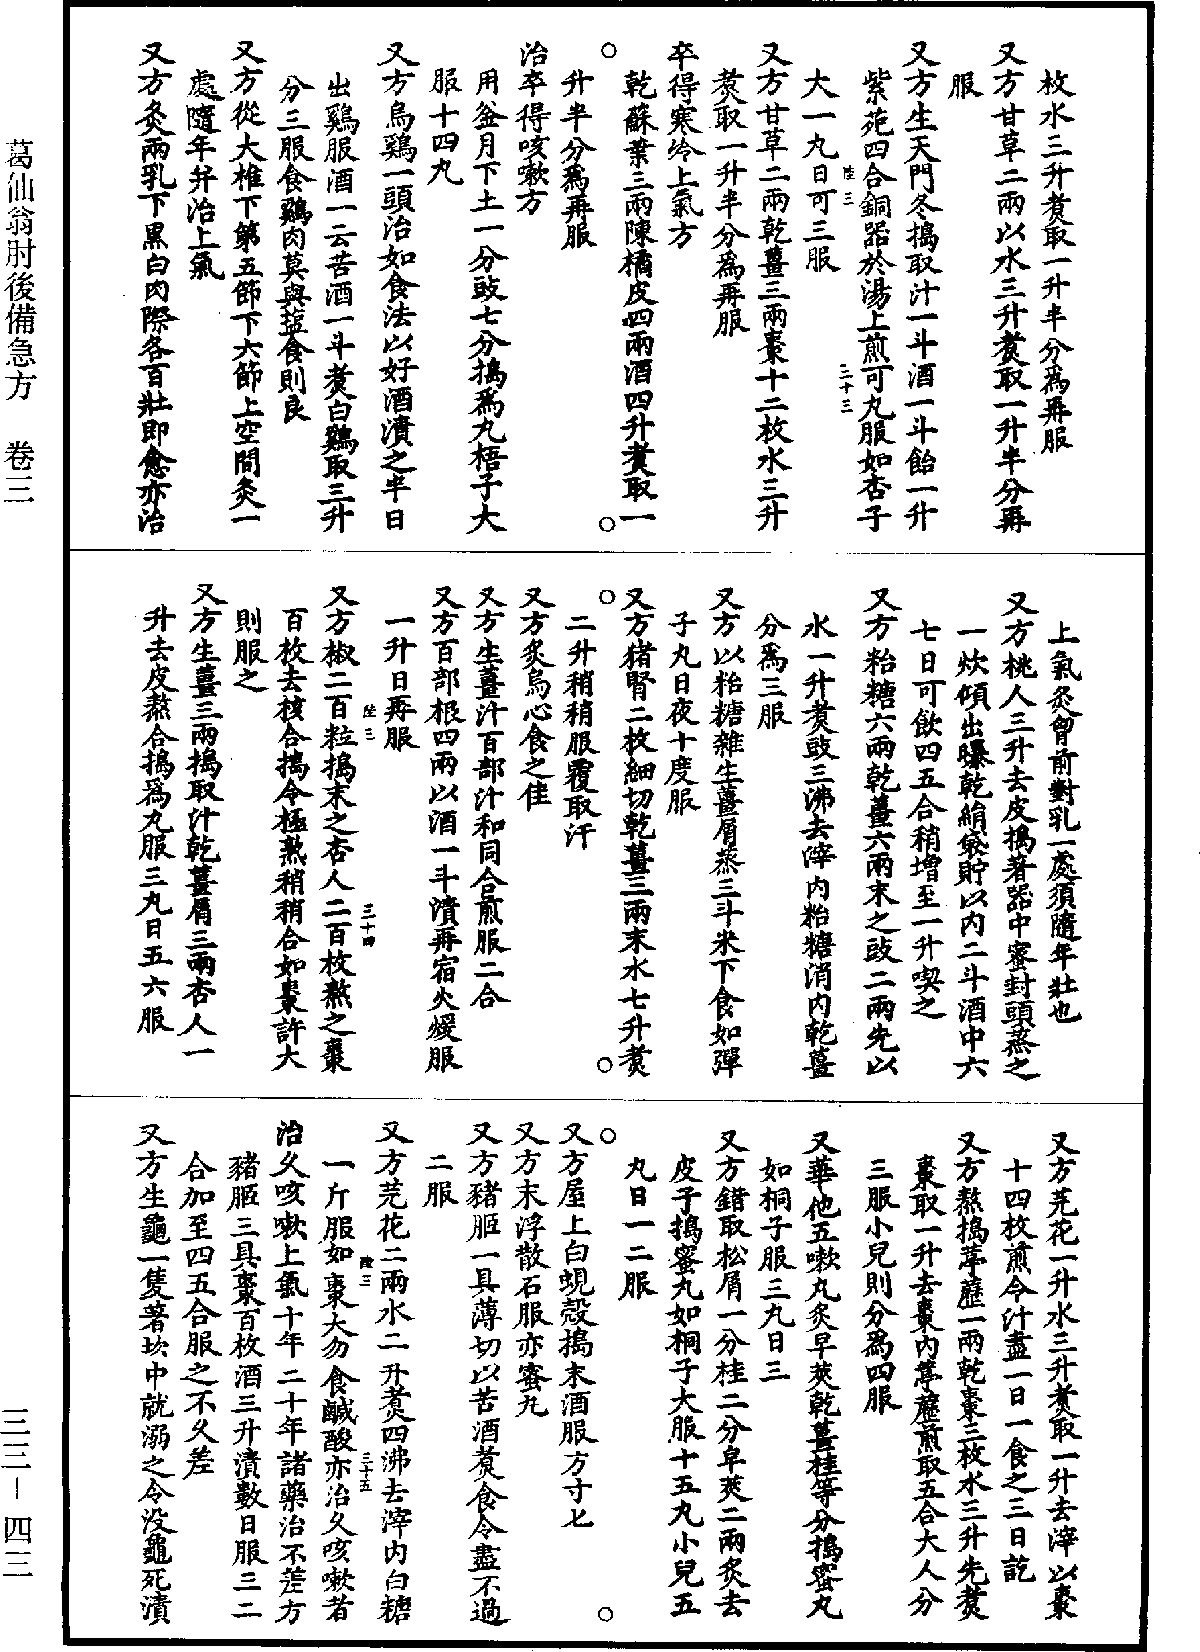 枚水二升煑取一升半分爲再服
又方甘草二兩以水三升煑取一升半分再
服
又方生天門冬搗取汁一斗酒一斗飴一升
紫苑四合銅器於湯上煎可丸服如杏子
大一丸日可三服
陸三
三十三
又方甘草二兩乾薑三兩棗十二枚水三升
煑取一升半分爲再服
卒得寒冷上氣方
乾蘇葉三兩陳橘皮四兩酒四升煑取一
升半分爲再服
治卒得咳嗽方
用釜月下土一分豉七分搗爲丸梧子大
服十四丸
又方烏鷄一頭治如食法以好酒漬之半日
出鷄服酒一云苦酒一斗煑白鷄取三升
分三服食鷄肉莫與盐食則良
又方從大椎下第五節下六節上空間灸一
處隨年并治上氣
又方灸兩乳下黑白肉際各百壯即愈亦治
上氣灸胷前對乳一處須隨年壯也
又方桃人三升去皮搗著器中蜜封頭蒸之
一炊傾出曝乾絹袋貯以内二斗酒中六
七日可飲四五合稍增至一升喫之
又方粘糖六兩乾薑六兩末之豉二兩先以
水一升煑豉三沸去滓内粘糖消内乾薑
分爲三服
又方以粘糖雜生薑屑蒸三斗米下食如彈
子丸日夜十度服
又方猪腎二枚細切乾薑三兩末水七升煑
二升稍稍服覆取汗
又方炙烏心食之佳
又方生薑汁百部汁和同合煎服二合
又方百部根四兩以酒一斗漬再宿火煖服
一升日再服
陸三
三十四
又方椒二百粒搗末之杏人二百枚熬之棗
百枚去核合搗令極熟稍稍合如棗許大
則服之
又方生薑三兩搗取汁乾薑屑三兩杏人一
升去皮熬合搗爲丸服三丸日五六服
又方芫花一升水三升煑取一升去滓以棗
十四枚煎令汁盡一日一食之三日訖
又方熬搗葶藶一兩乾棗三枚水三升先煑
棗取一升去棗内葶藶煎取五合大人分
三服小兒則分爲四服
又華他五嗽丸炙早莢乾薑桂等分搗蜜丸
如桐子服三丸日三
又方錯取松屑一分桂二分皁莢二兩炙去
皮子搗蜜丸如桐子大服十五丸小兒五
丸日一二服
又方屋上白蜆殼搗末酒服方寸匕
又方末浮散石服亦蜜丸
又方豬胵一具薄切以苦酒煑食令盡不過
二服
又方芫花二兩水二升煑四沸去滓内白糖
一斤服如棗大勿食鹹酸亦治久咳嗽者
陸三
三十五
治久咳嗽上氣十年二十年諸藥治不差方
豬胵三具棗百枚酒三升漬數日服三二
合加至四五合服之不久差
又方生龜一隻著坎中就溺之令没龜死漬
葛仙翁肘後備急方 卷三
三三－四三